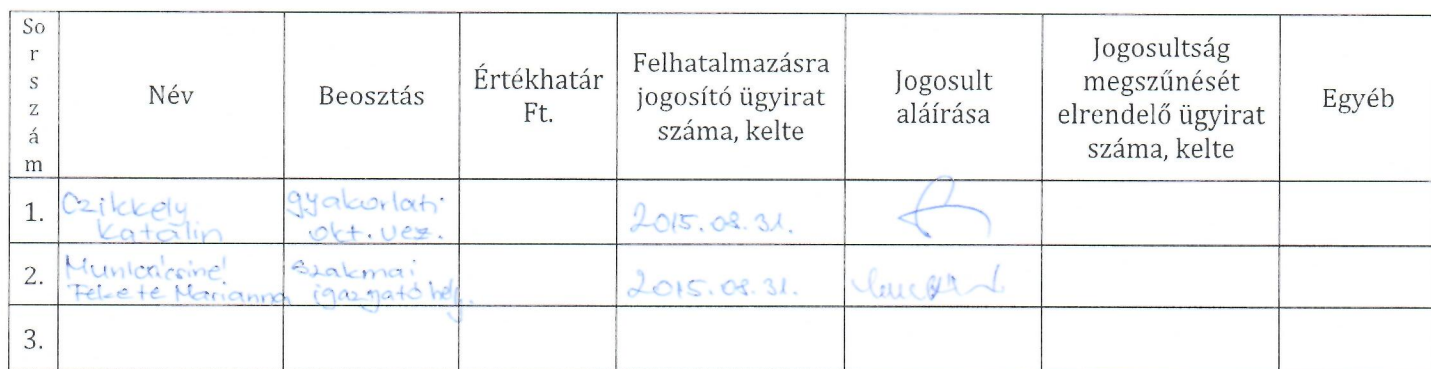 So
r
s
z
á
m
Név
Beosztás
Értékhatár
Ft.
Felhatalmazásra
jogosító ügyirat
száma, kelte
Jogosult
aláírása
Jogosultság
megszűnését
elrendelő ügyirat
száma, kelte
Egyéb
1.
Czikkely
Katalin
gyakorlati
okt. vez.
2015.08.31.
2.
Munkácsiné
Fekete Marianna
szakmai
igazgató hely.
2015.08.31.
3.